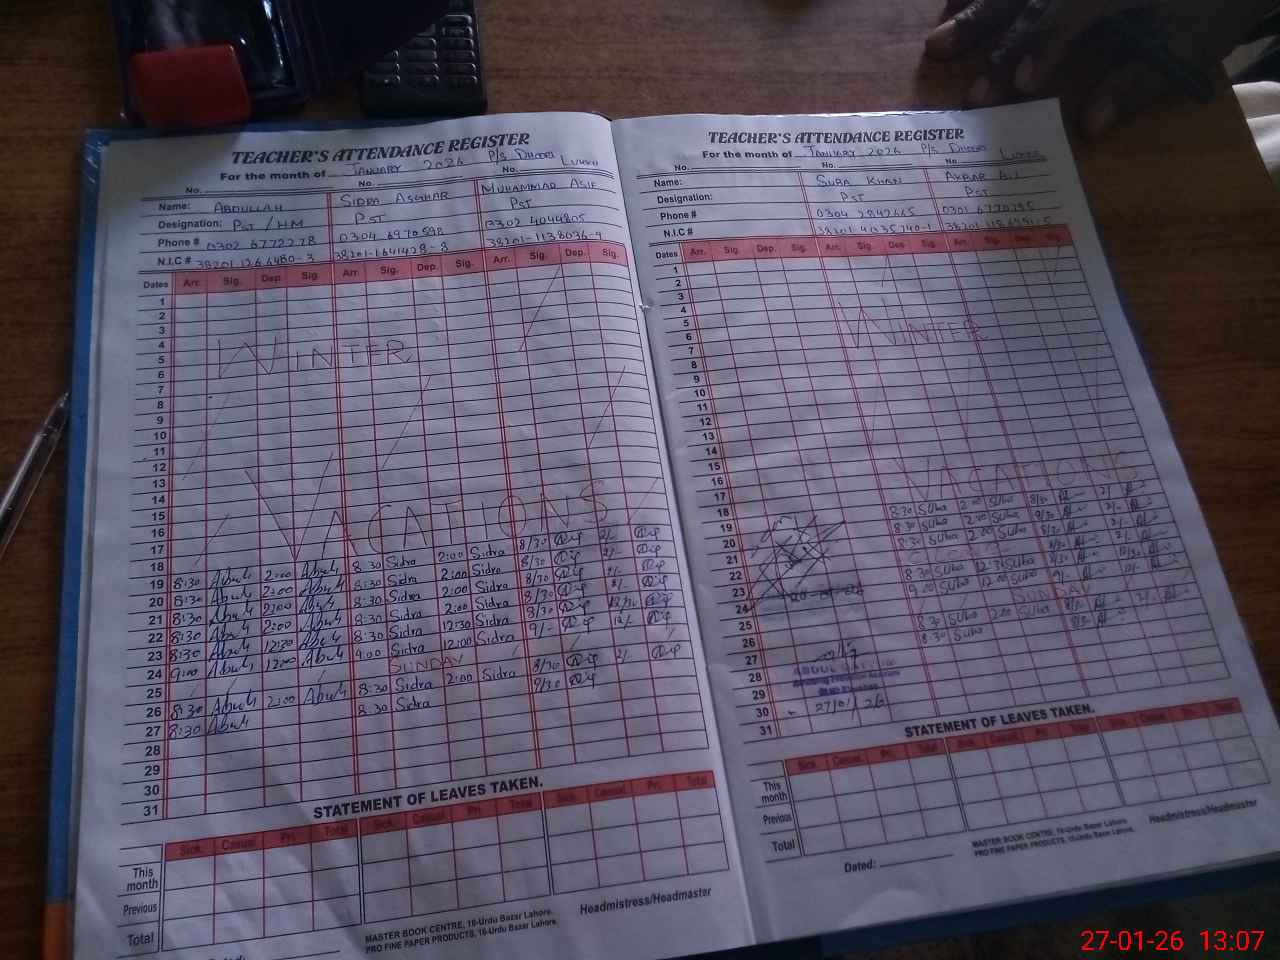 TEACHER'S ATTENDANCE REGISTER
For the month of JANUARY 2026 P/S DHODO LURKU
No. No. No.
Name: ABDULLAH SIDRA ASGHAR MUHAMMAD ASIF
Designation: PST/HM PST PST
Phone # 0302 6772278 0304 6970598 0302 4044805
N.I.C # 38201-1266480-3 38201-1641428-8 38201-1138036-9
Dates Arr. Sig. Dep. Sig. Arr. Sig. Dep. Sig. Arr. Sig. Dep. Sig.
1
2
3
4
5 WINTER
6
7
8
9
10
11
12
13
14
15
16 VACATIONS
17
18
19 8:30 Abull 2:00 Abull 8:30 Sidra 2:00 Sidra 8/30 2/-
20 8:30 Abull 2:00 Abull 8:30 Sidra 2:00 Sidra 8/30 2/-
21 8:30 Abull 2:00 Abull 8:30 Sidra 2:00 Sidra 8/30 2/-
22 8:30 Abull 2:00 Abull 8:30 Sidra 2:00 Sidra 8/30 2/-
23 8:30 Abull 12:30 Abull 8:30 Sidra 12:30 Sidra 8/30 12/30
24 9:00 Abull 12:00 Abull 9:00 Sidra 12:00 Sidra 9/- 12/-
25 SUNDAY
26 8:30 Abull 2:00 Abull 8:30 Sidra 2:00 Sidra 8/30 2/-
27 8:30 Abull 8:30 Sidra 8/30
28
29
30
31
STATEMENT OF LEAVES TAKEN.
Sick. Casual Pri. Total Sick. Casual Pri. Total Sick. Casual Pri. Total
This month
Previous
Total
MASTER BOOK CENTRE, 16-Urdu Bazar Lahore.
PRO FINE PAPER PRODUCTS, 16-Urdu Bazar Lahore.
Headmistress/Headmaster
TEACHER'S ATTENDANCE REGISTER
For the month of JANUARY 2026 P/S DHODO LURKU
No. No. No.
Name: SUBA KHAN AKBAR ALI
Designation: PST PST
Phone # 0304 2842665 0301 6770795
N.I.C # 38201-4035740-1
Dates Arr. Sig. Dep. Sig. Arr. Sig. Dep. Sig. Arr. Sig. Dep. Sig.
1
2
3
4
5
6 WINTER
7
8
9
10
11
12
13
14
15
16 VACATIONS
17
18
19 8:30 Suba 2:00 Suba 8/30 2/-
20 8:30 Suba 2:00 Suba 8/30 2/-
21 8:30 Suba 2:00 Suba 8/30 2/-
22
23 8:30 Suba 12:30 Suba
24 9:00 Suba 12:00 Suba 9/-
25 SUNDAY
26 8:30 Suba 2:00 Suba 2/-
27 8:30 Suba 8/30
28
29
30
31
27/01/26
STATEMENT OF LEAVES TAKEN.
Sick. Casual Pri. Total Sick. Casual Pri. Total Sick. Casual Pri. Total
This month
Previous
Total
Dated:
MASTER BOOK CENTRE, 16-Urdu Bazar Lahore.
PRO FINE PAPER PRODUCTS, 16-Urdu Bazar Lahore.
Headmistress/Headmaster
27-01-26 13:07